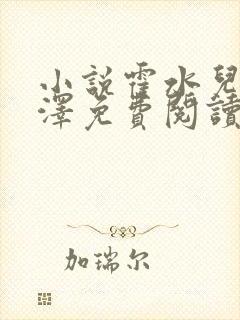 小說霍水兒
澤免費閱讀
加瑞尔